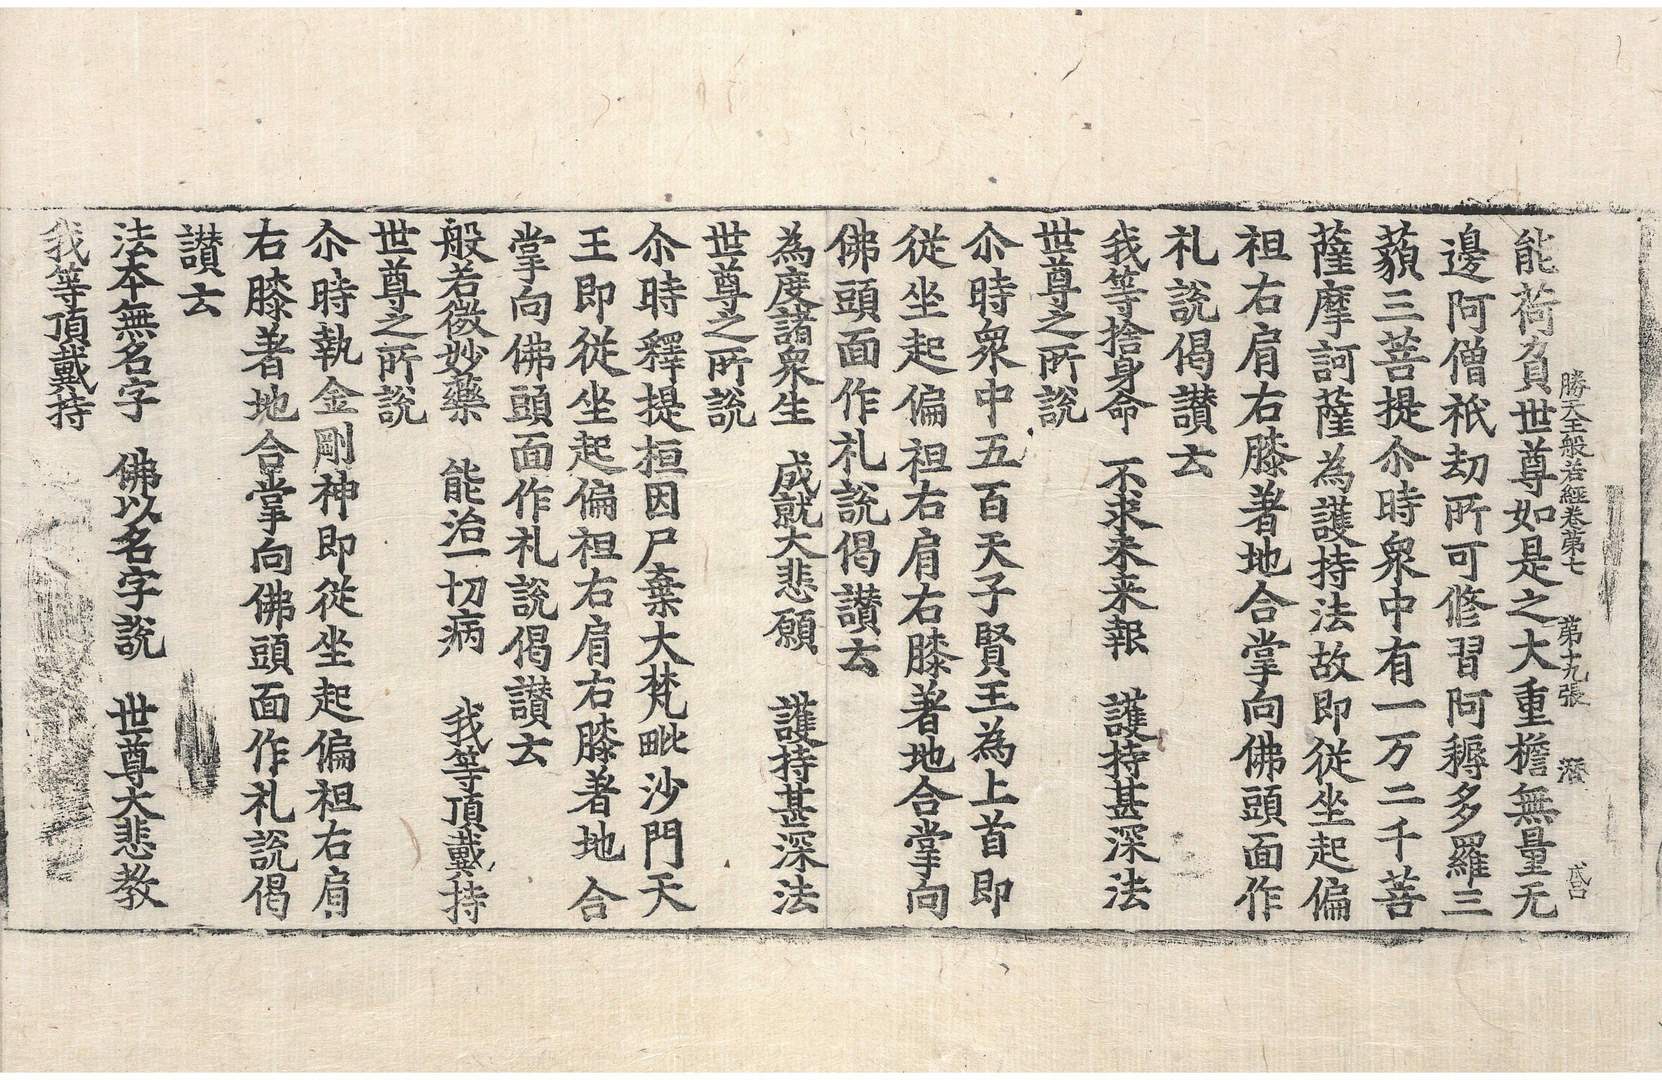 勝天王般若經卷第七　第十九張　潑
能荷負世尊如是之大重檐無量无
邊阿僧祇劫所可修習阿耨多羅三
藐三菩提尒時衆中有一万二千菩
薩摩訶薩為護持法故即從坐起偏
袒右肩右膝著地合掌向佛頭面作
礼說偈讃云
我等捨身命　不求未来報　護持甚深法
世尊之所說
尒時衆中五百天子賢王為上首即
從坐起偏袒右肩右膝著地合掌向
佛頭面作礼說偈讃云
為度諸衆生　成就大悲願　護持甚深法
世尊之所說
尒時釋提桓因尸棄大梵毗沙門天
王即從坐起偏袒右肩右膝著地合
掌向佛頭面作礼說偈讃云
般若微妙藥　能治一切病　我等頂戴持
世尊之所說
尒時執金剛神即從坐起偏袒右肩
右膝著地合掌向佛頭面作礼說偈
讃云
法本無名字　佛以名字說　世尊大悲教
我等頂戴持